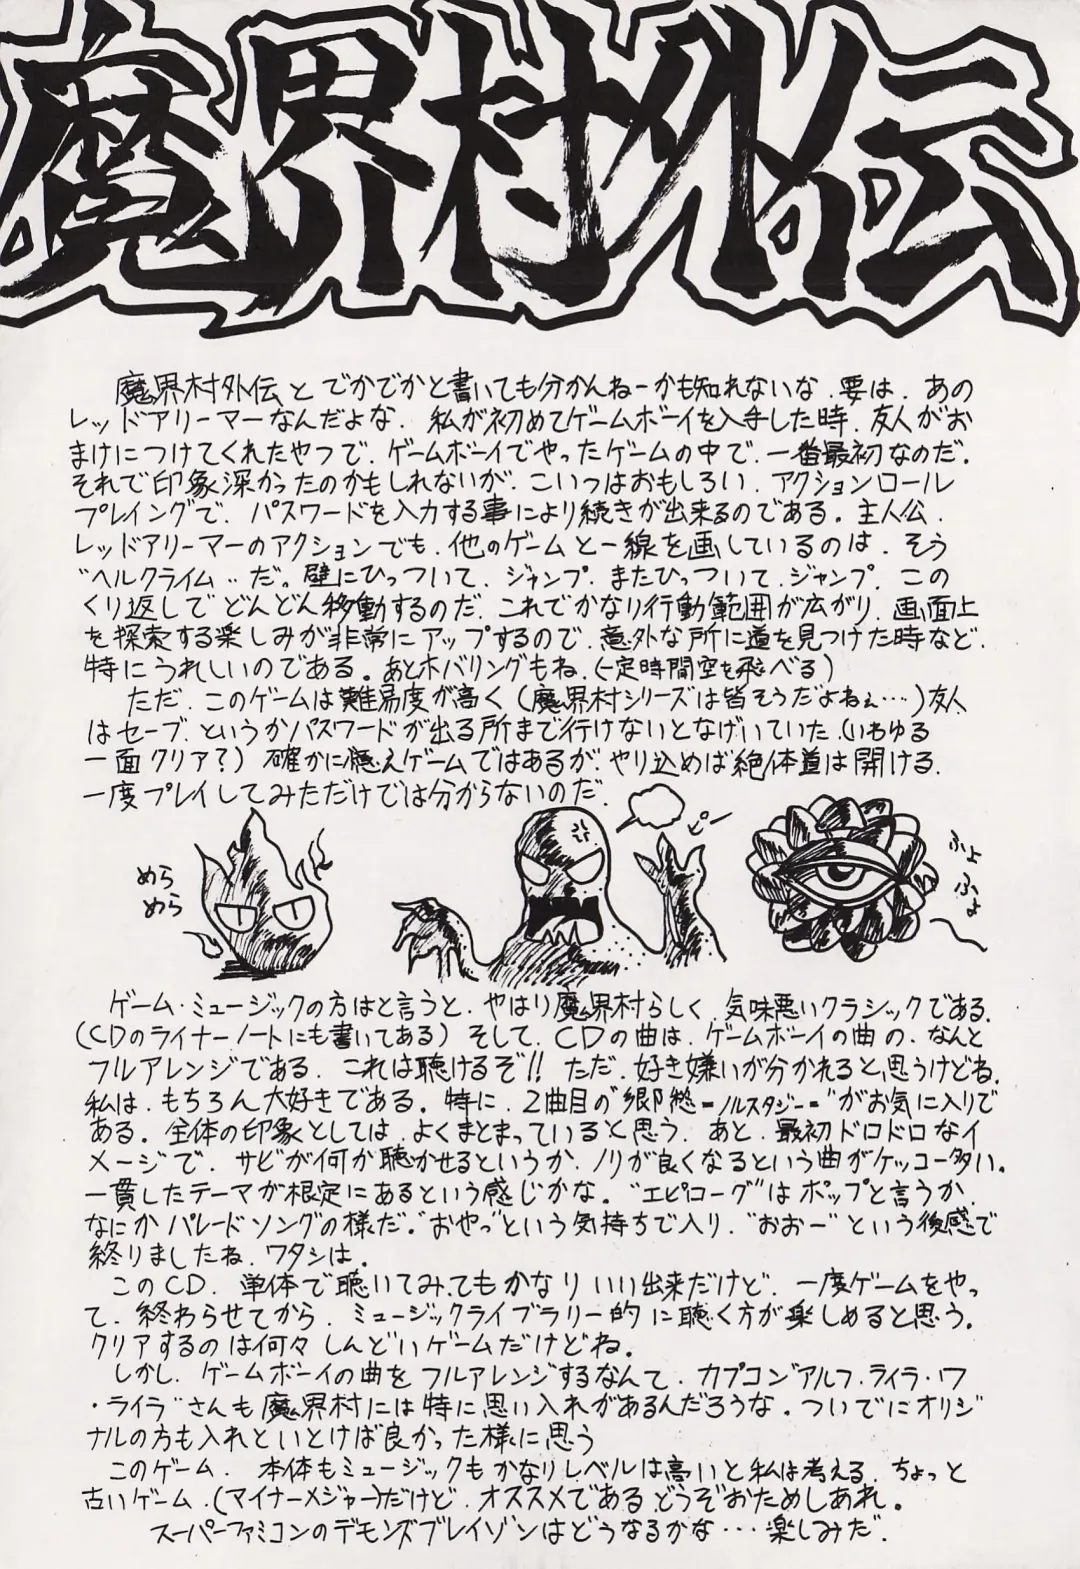 魔界村外伝
魔界村外伝とでかでかと書いても分かんねーかも知れないな.要は.あの
レッドアリーマーなんだよな.私が初めてゲームボーイを入手した時.友人がお
まけにつけてくれたやつで.ゲームボーイでやったゲームの中で.一番最初なのだ.
それで印象深かったのかもしれないが.こいつはおもしろい.アクションロール
プレイングで.パスワードを入力する事により続きが出来るのである。主人公.
レッドアリーマーのアクションでも.他のゲームと一線を画しているのは.そう
"ヘルクライム"だ。壁にひっついて.ジャンプ.またひっついて.ジャンプ.この
くり返しでどんどん移動するのだ.これでかなり行動範囲が広がり.画面上
を探索する楽しみが非常にアップするので.意外な所に道を見つけた時など.
特にうれしいのである。あとホバリングもね.(一定時間空を飛べる)
ただ.このゲームは難易度が高く(魔界村シリーズは皆そうだよねぇ…)友人
はセーブ.というかパスワードが出る所まで行けないとなげいていた.(いわゆる
一面クリア?)確かに燃えゲームではあるが.やり込めば絶体道は開ける.
一度プレイしてみただけでは分からないのだ.
めら
めら
ふよ
ふよ
ゲーム・ミュージックの方はと言うと.やはり魔界村らしく.気味悪いクラシックである.
(CDのライナーノートにも書いてある)そして.CDの曲は.ゲームボーイの曲の.なんと
フルアレンジである.これは聴けるぞ!!ただ.好き嫌いが分かれると思うけどね.
私は.もちろん大好きである.特に.2曲目の"郷愁=ノルスタジー="がお気に入りで
ある。全体の印象としては.よくまとまっていると思う.あと.最初ドロドロなイ
メージで.サビが何か聴かせるというか.ノリが良くなるという曲がケッコー多い。
一貫したテーマが根定にあるという感じかな。"エピローグ"はポップと言うか.
なにかパレードソングの様だ."おやっ"という気持ちで入り."おおー"という後感で
終りましたね.ワタシは.
このCD.単体で聴いてみてもかなりいい出来だけど.一度ゲームをやっ
て.終わらせてから.ミュージックライブラリー的に聴く方が楽しめると思う。
クリアするのは何々しんどいゲームだけどね。
しかし.ゲームボーイの曲をフルアレンジするなんて.カプコン"アルフ・ライラ・ワ
・ライラ"さんも魔界村には特に思い入れがあるんだろうな。ついでにオリジ
ナルの方も入れといとけば良かった様に思う
このゲーム.本体もミュージックもかなりレベルは高いと私は考える.ちょっと
古いゲーム.(マイナーメジャー)だけど.オススメである.どうぞおためしあれ。
スーパーファミコンのデモンズブレイゾンはどうなるかな…楽しみだ.